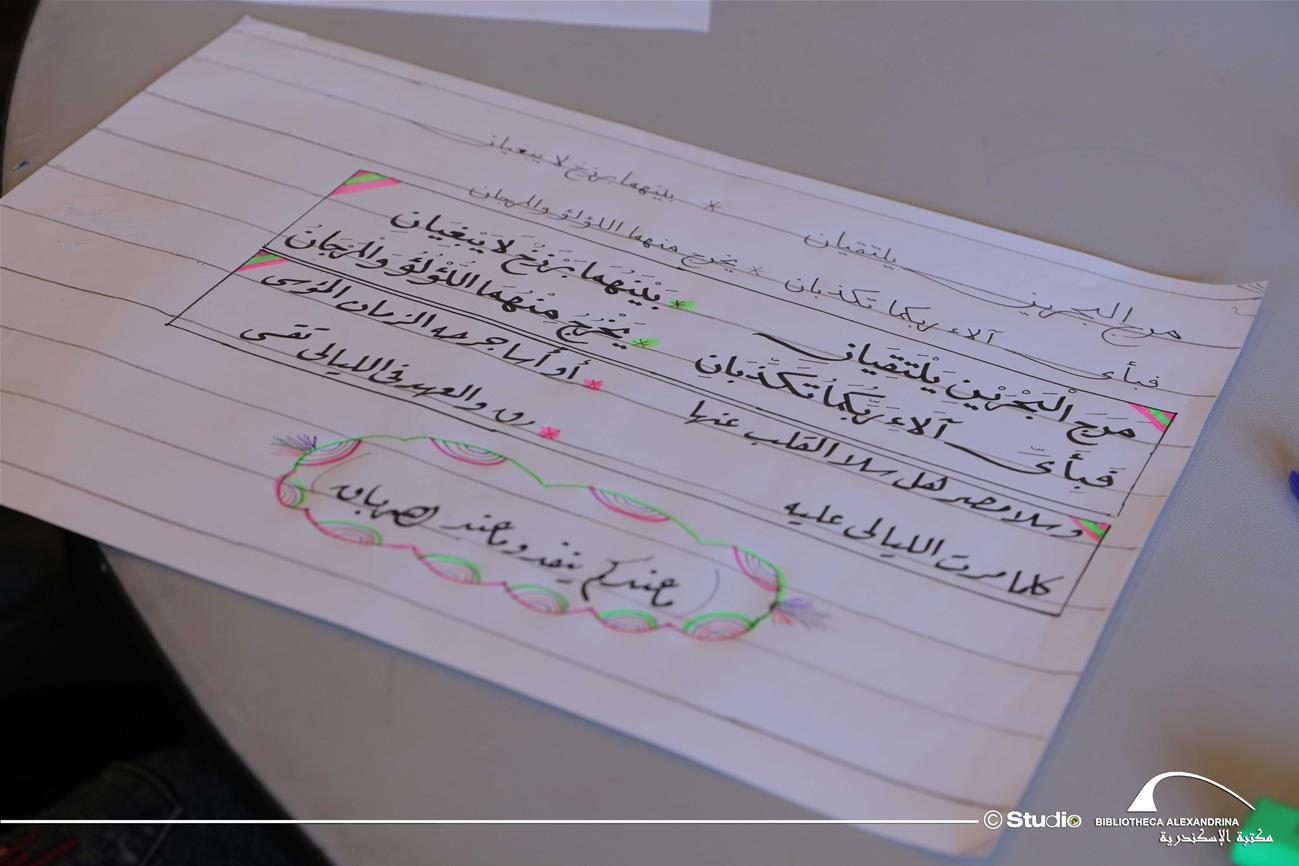 مرج البحرين يلتقيان * بينهما برزخ لا يبغيان
فبأى آلاء ربكما تكذبان * يخرج منهما اللؤلؤ والمرجان
مَرَجَ الْبَحْرَيْنِ يَلْتَقِيَانِ * بَيْنَهُمَا بَرْزَخٌ لَا يَبْغِيَانِ
فَبِأَىِّ آلَاءِ رَبِّكُمَا تُكَذِّبَانِ * يَخْرُجُ مِنْهُمَا اللُّؤْلُؤُ وَالْمَرْجَانُ
وسلا مصر هل سلا القلب عنها * أو أسا جرحه الزمان المؤسى
كلما مرت الليالى عليه * رق والعهد فى الليالى تقسى
ما عندكم ينفد وما عند الله باق
© Studio
BIBLIOTHECA ALEXANDRINA
مكتبة الإسكندرية